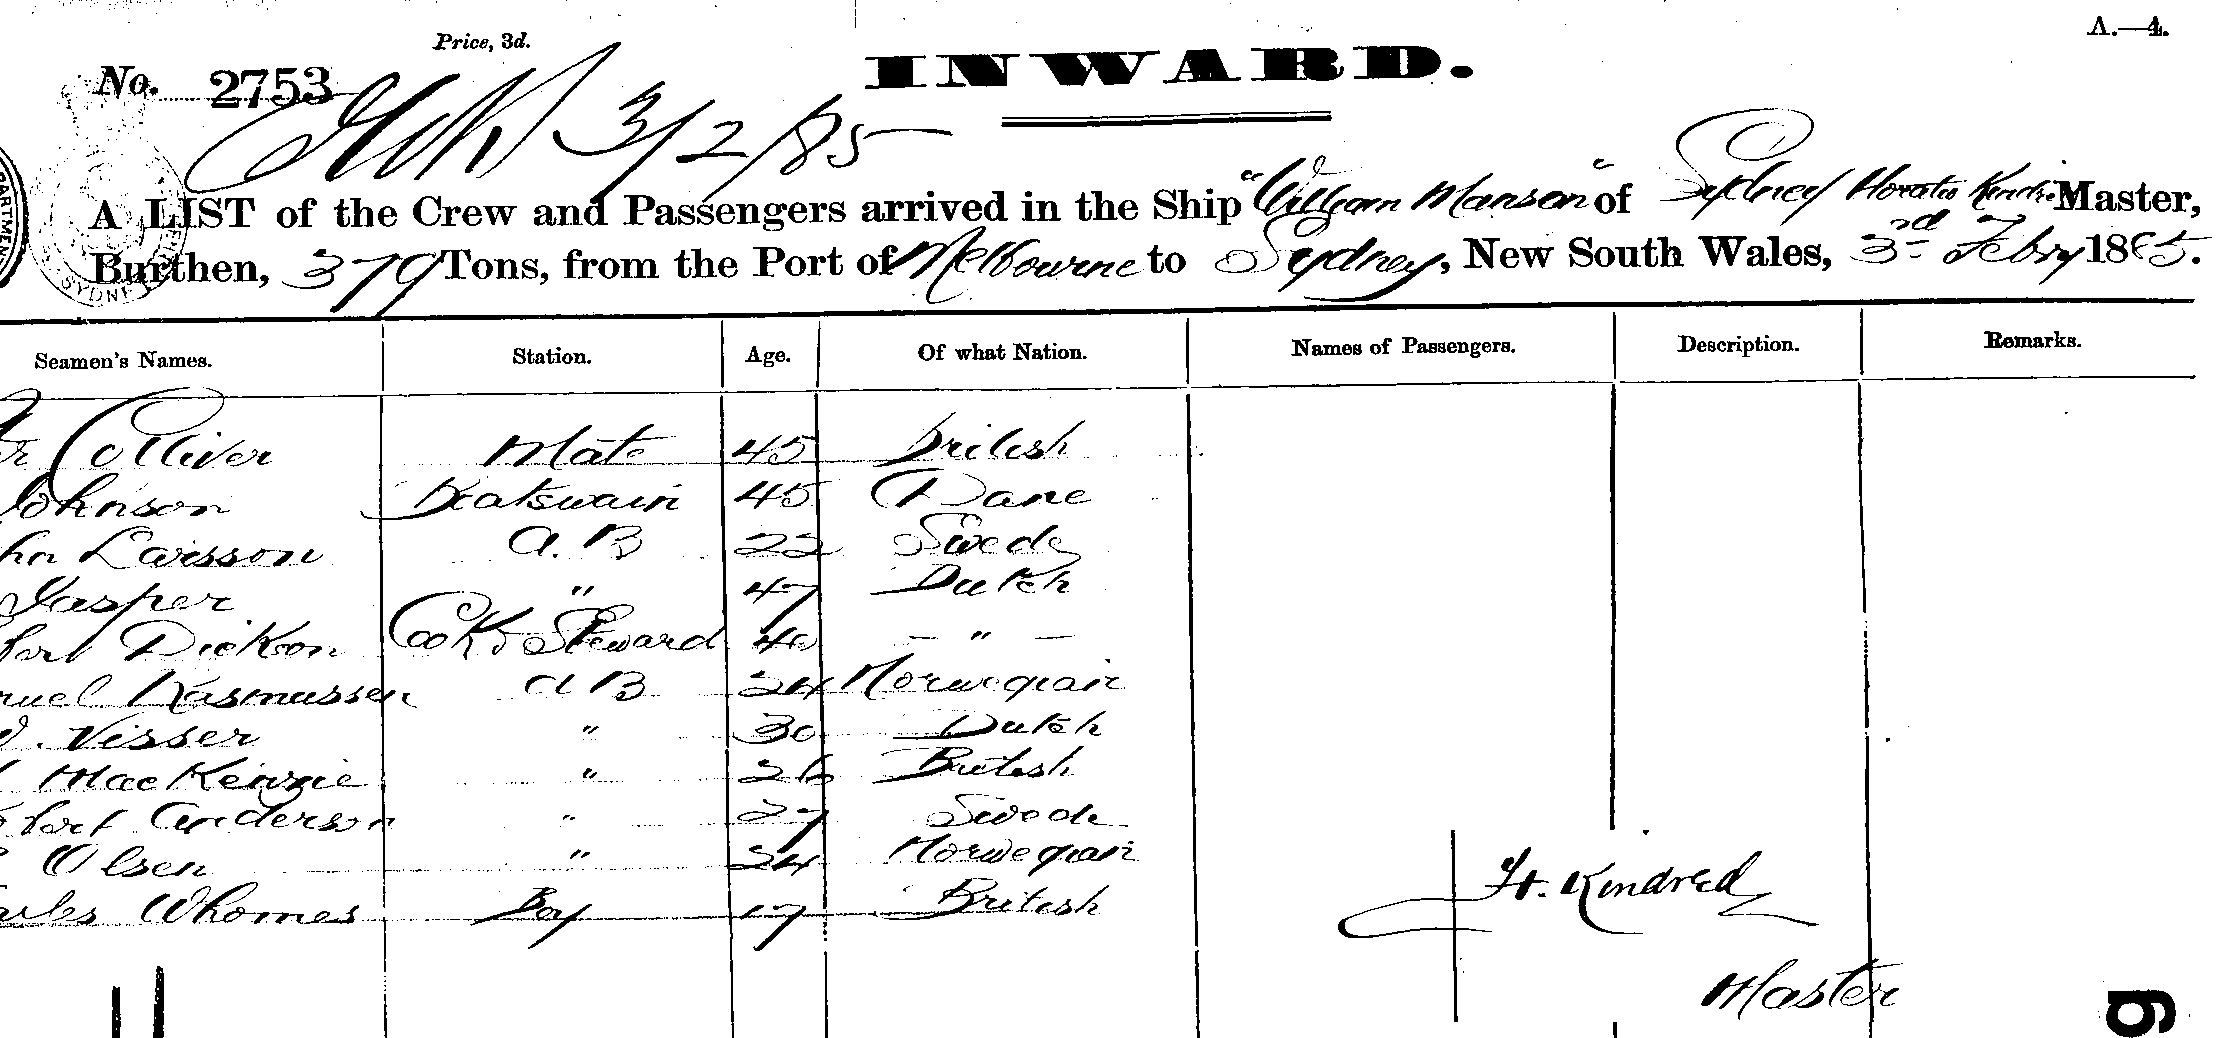 Price, 3d.
A.—4.
No. 2753
INWARD.
3/2/85
A LIST of the Crew and Passengers arrived in the Ship "William Manson" of Sydney Horatio Kindred Master,
Burthen, 379 Tons, from the Port of Melbourne to Sydney, New South Wales, 3rd Febry 1885.
Seamen's Names. Station. Age. Of what Nation. Names of Passengers. Description. Remarks.
Colliver Mate 45 British
Johnson Boatswain 45 Dane
Larsson A.B 22 Swede
Jasper " 47 Dutch
Dickon Cook & Steward 40 — " —
Rasmussen A B 24 Norwegian
Visser " 30 Dutch
MacKenzie " 26 British
Anderson " 27 Swede
Olsen " 24 Norwegian
Whomes Boy 17 British
H. Kindred
Master
g